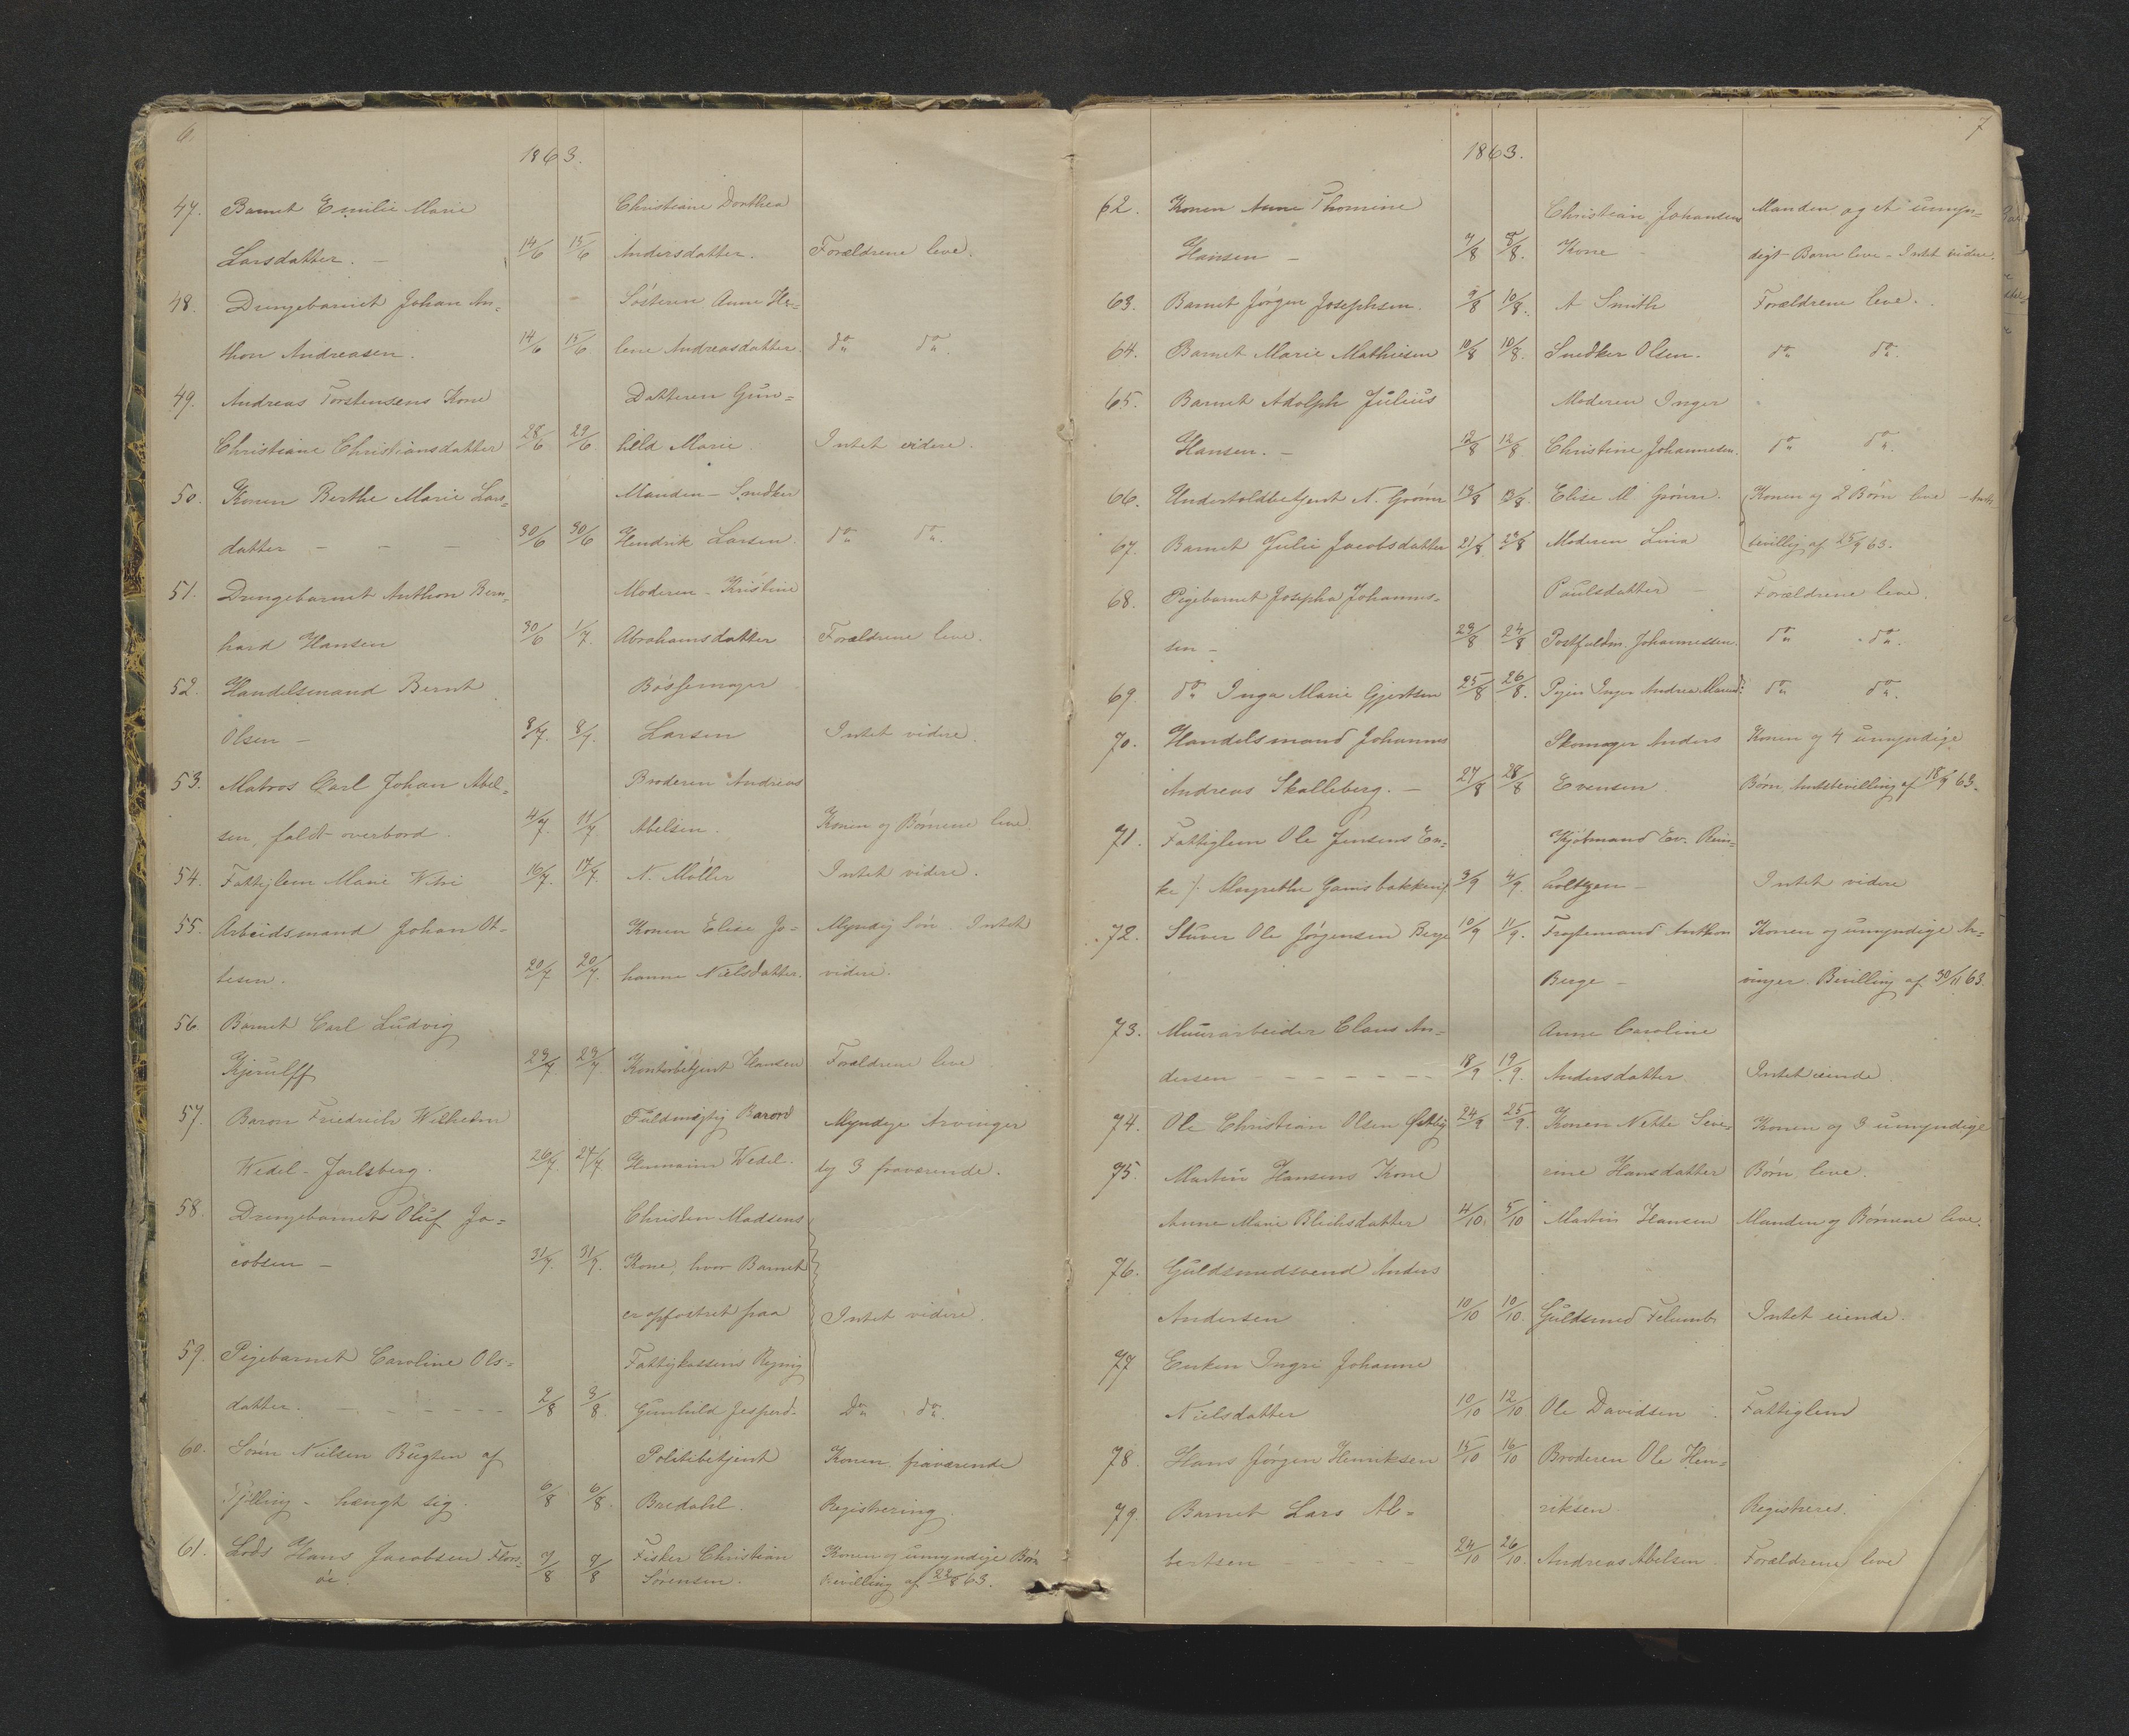 6.
1863.
47. Barnet Emilie Marie Christiane Dorthea
Larsdatter. – 14/6 15/6 Andersdatter. Forældrene leve.
48. Drengebarnet Johan An- Søsteren Anne He-
thon Andreasen. 14/6 15/6 lene Andreasdatter. do do.
49. Andreas Torstensens Kone Datteren Gun-
Christiane Christiansdatter 28/6 29/6 hild Marie Intet videre.
50. Konen Berthe Marie Lars- Manden – Snedker
datter – – – 30/6 30/6 Hendrik Larsen. do do.
51. Drengebarnet Anthon Bern- Moderen – Kristine
hard Hansen 30/6 1/7. Abrahamsdatter Forældrene leve.
52. Handelsmand Bernt Bøssemager
Olsen – 8/7. 8/7. Larsen Intet videre.
53. Matros Carl Johan Abel- Broderen Andreas
sen, faldt overbord. 4/7. 11/7. Abelsen. Konen og Børnene leve.
54. Fattiglem Marie 16/7. 17/7. N. Møller Intet videre.
55. Arbeidsmand Johan Ot- Konen Elise Jo- Myndig Søn. Intet
tesen. 20/7 20/7. hanne Nielsdatter. videre.
56. Barnet Carl Ludvig
Kjerulff 23/7. 23/7. Kontorbetjent Hansen Forældrene leve
57. Baron Friedrich Wilhelm Fuldmægtig Baron Myndige Arvinger
Wedel-Jarlsberg. 26/7. 27/7 Wedel. 3 fraværende.
58. Drengebarnet Oluf Ja- Christen Madsens
cobsen – 31/7. 31/7. Kone, hvor Barnet
er opfostret paa Intet videre.
59. Pigebarnet Caroline Ols- Fattigkassens Regnig
datter. – – – – – 2/8 3/8. Gunhild Jespersd. Do do.
60. Sørn Nielsen Bugten af Politibetjent Konen fraværende
Tjølling – hængt sig. 6/8 6/8. Bredahl. Registrering.
61. Lods Hans Jacobsen Flors- 7/8 9/8 Fisker Christian Konen og umyndige Børn
øe. Sørensen. Bevilling af 22/8 63.
7
1863.
62. Konen Anne Thomine Christian Johansens Manden og et umyn-
Hansen – 7/8 8/8. Kone – digt Barn leve – Intet videre.
63. Barnet Jørgen Josephsen. 9/8 10/8. A Smith Forældrene leve.
64. Barnet Marie Mathisen 10/8 10/8. Snedker Olsen. do do.
65. Barnet Adolph Julius Moderen Inger
Hansen. – 12/8 12/8 Christine Johannesen. do do.
66. Undertoldbetjent N. Grønn 13/8 13/8. Elise M Grønn. Konen og 2 Børn leve – Amts
67. Barnet Julie Jacobsdatter 21/8 23/8 Moderen Lina bevillig af 25/9 63.
68. Pigebarnet Josepha Johannes- Paulsdatter – Forældrene leve.
sen – 23/8 24/8 Postfuldm. Johannessen. do do.
69. do Inga Marie Gjertsen 25/8 26/8. Pigen Inger Andrea do do.
70. Handelsmand Johannes Skomager Anders Konen og 4 umyndige
Andreas Skalleberg. – 27/8 28/8 Evensen Børn, Amtsbevilling af 18/9 63.
71. Fattiglem Ole Jensens En- Kjøbmand Ev. Rein-
ke /: Margrethe Gamsbakken :/ 3/9 4/9. holtzen – Intet videre
72. Stuver Ole Jørgensen Berge 10/9 11/9. Fragtemand Anthon Konen og umyndige Ar-
Berge – vinger. Bevilling af 30/11 63.
73. Muurarbeider Claus An- Anne Caroline
dersen – – – – – – 18/9 19/9. Andersdatter Intet eiende
74. Ole Christian Olsen 24/9 25/9. Konen Nette Seve- Konen og 3 umyndige
75. Martin Hansens Kone rine Hansdatter Børn leve.
Anne Marie Blichsdatter 4/10. 5/10 Martin Hansen Manden og Børnene leve.
76. Guldsmedsvend Anders
Andersen 10/10 10/10. Guldsmed Felumb Intet eiende.
77 Enken Ingri Johanne
Nielsdatter 10/10 12/10 Ole Davidsen Fattiglem
78. Hans Jørgen Henriksen 15/10 16/10 Broderen Ole Hen-
79. Barnet Lars Al- riksen Registreres.
bertsen – – – – 24/10 26/10. Andreas Abelsen Forældrene leve